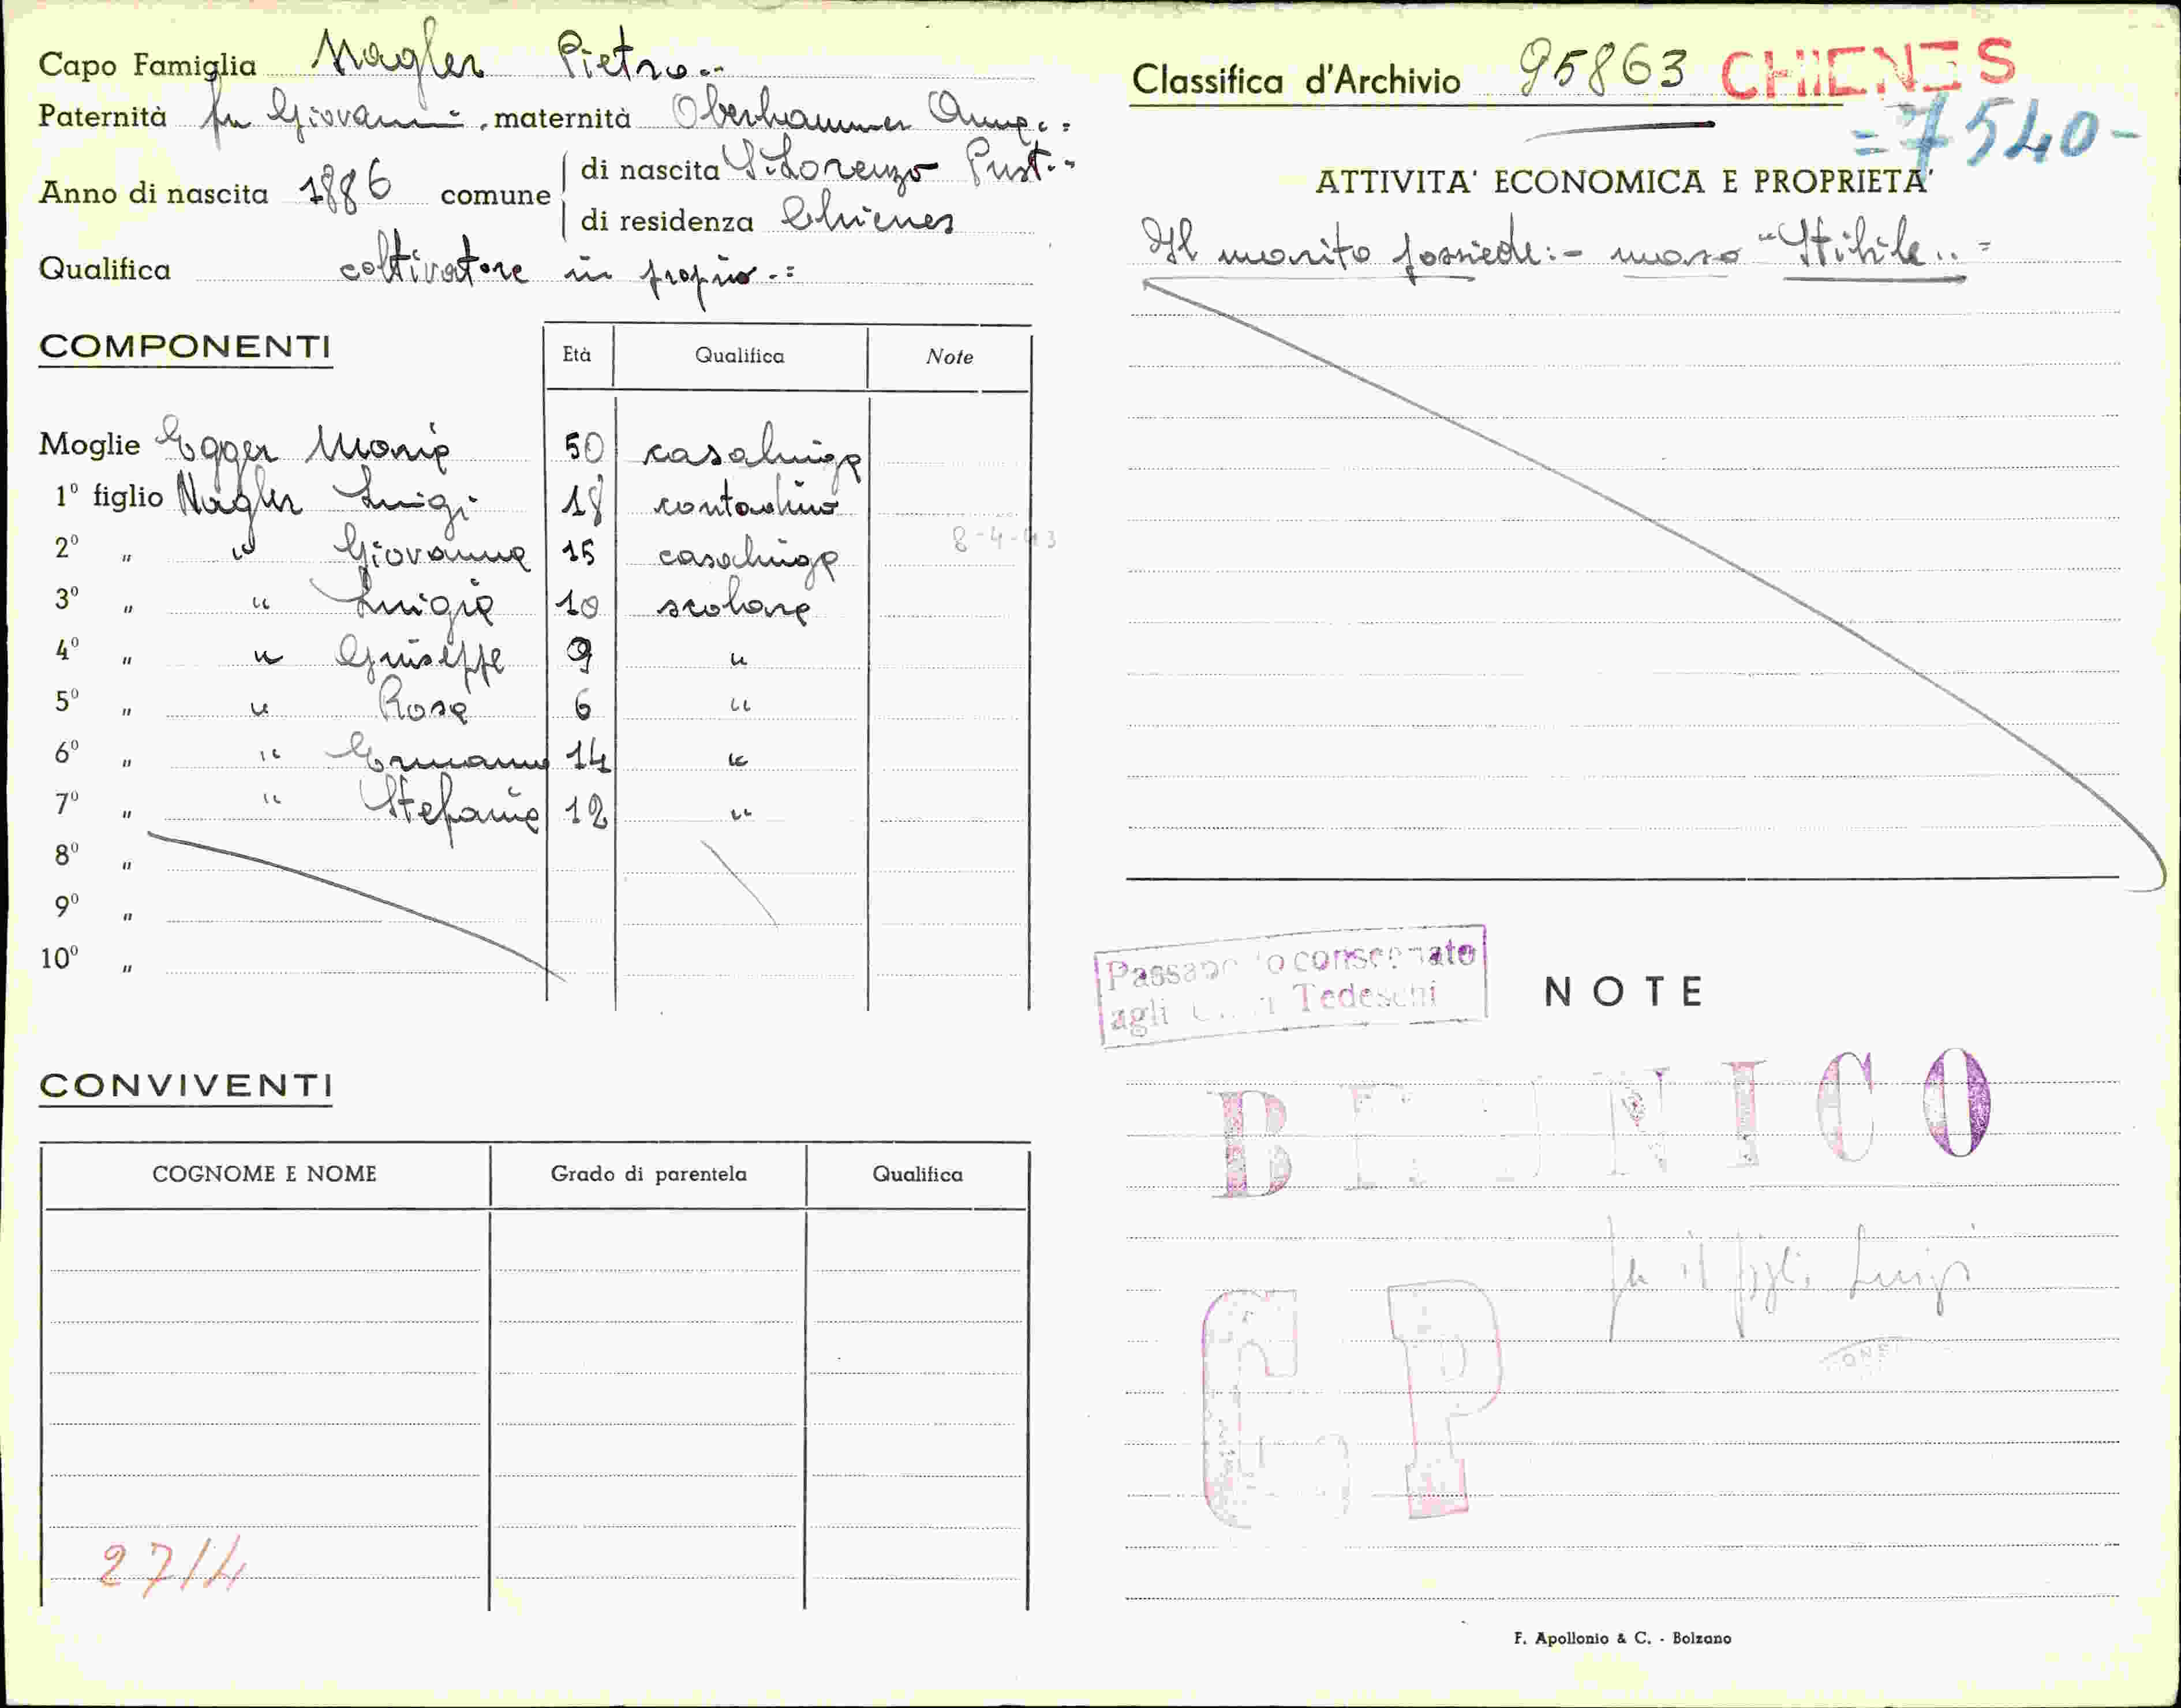 Capo Famiglia Nagler Pietro..
Paternità fu Giovanni, maternità Oberhammer Anna..
Anno di nascita 1886 comune
di nascita S. Lorenzo Pust.
di residenza Chienes
Qualifica coltivatore in proprio
COMPONENTI
Età Qualifica Note
Moglie Egger Maria 50 casalinga
1º figlio Nagler Luigi 18 contadino
2º " " Giovanna 15 casalinga 8-4-43
3º " " Luigia 10 scolare
4º " " Giuseppe 9 "
5º " " Rosa 6 "
6º " " Ermanno 14 "
7º " " Stefania 12 "
8º "
9º "
10º "
CONVIVENTI
COGNOME E NOME Grado di parentela Qualifica
27/4
Classifica d'Archivio 95863 CHIENES
=7540-
ATTIVITA' ECONOMICA E PROPRIETA'
Il marito possiede:- maso "Stihile..=
Passaporto consegnato
agli Tedeschi
NOTE
BRUNICO
il figlio Luigi
G P
F. Apollonio & C. - Bolzano